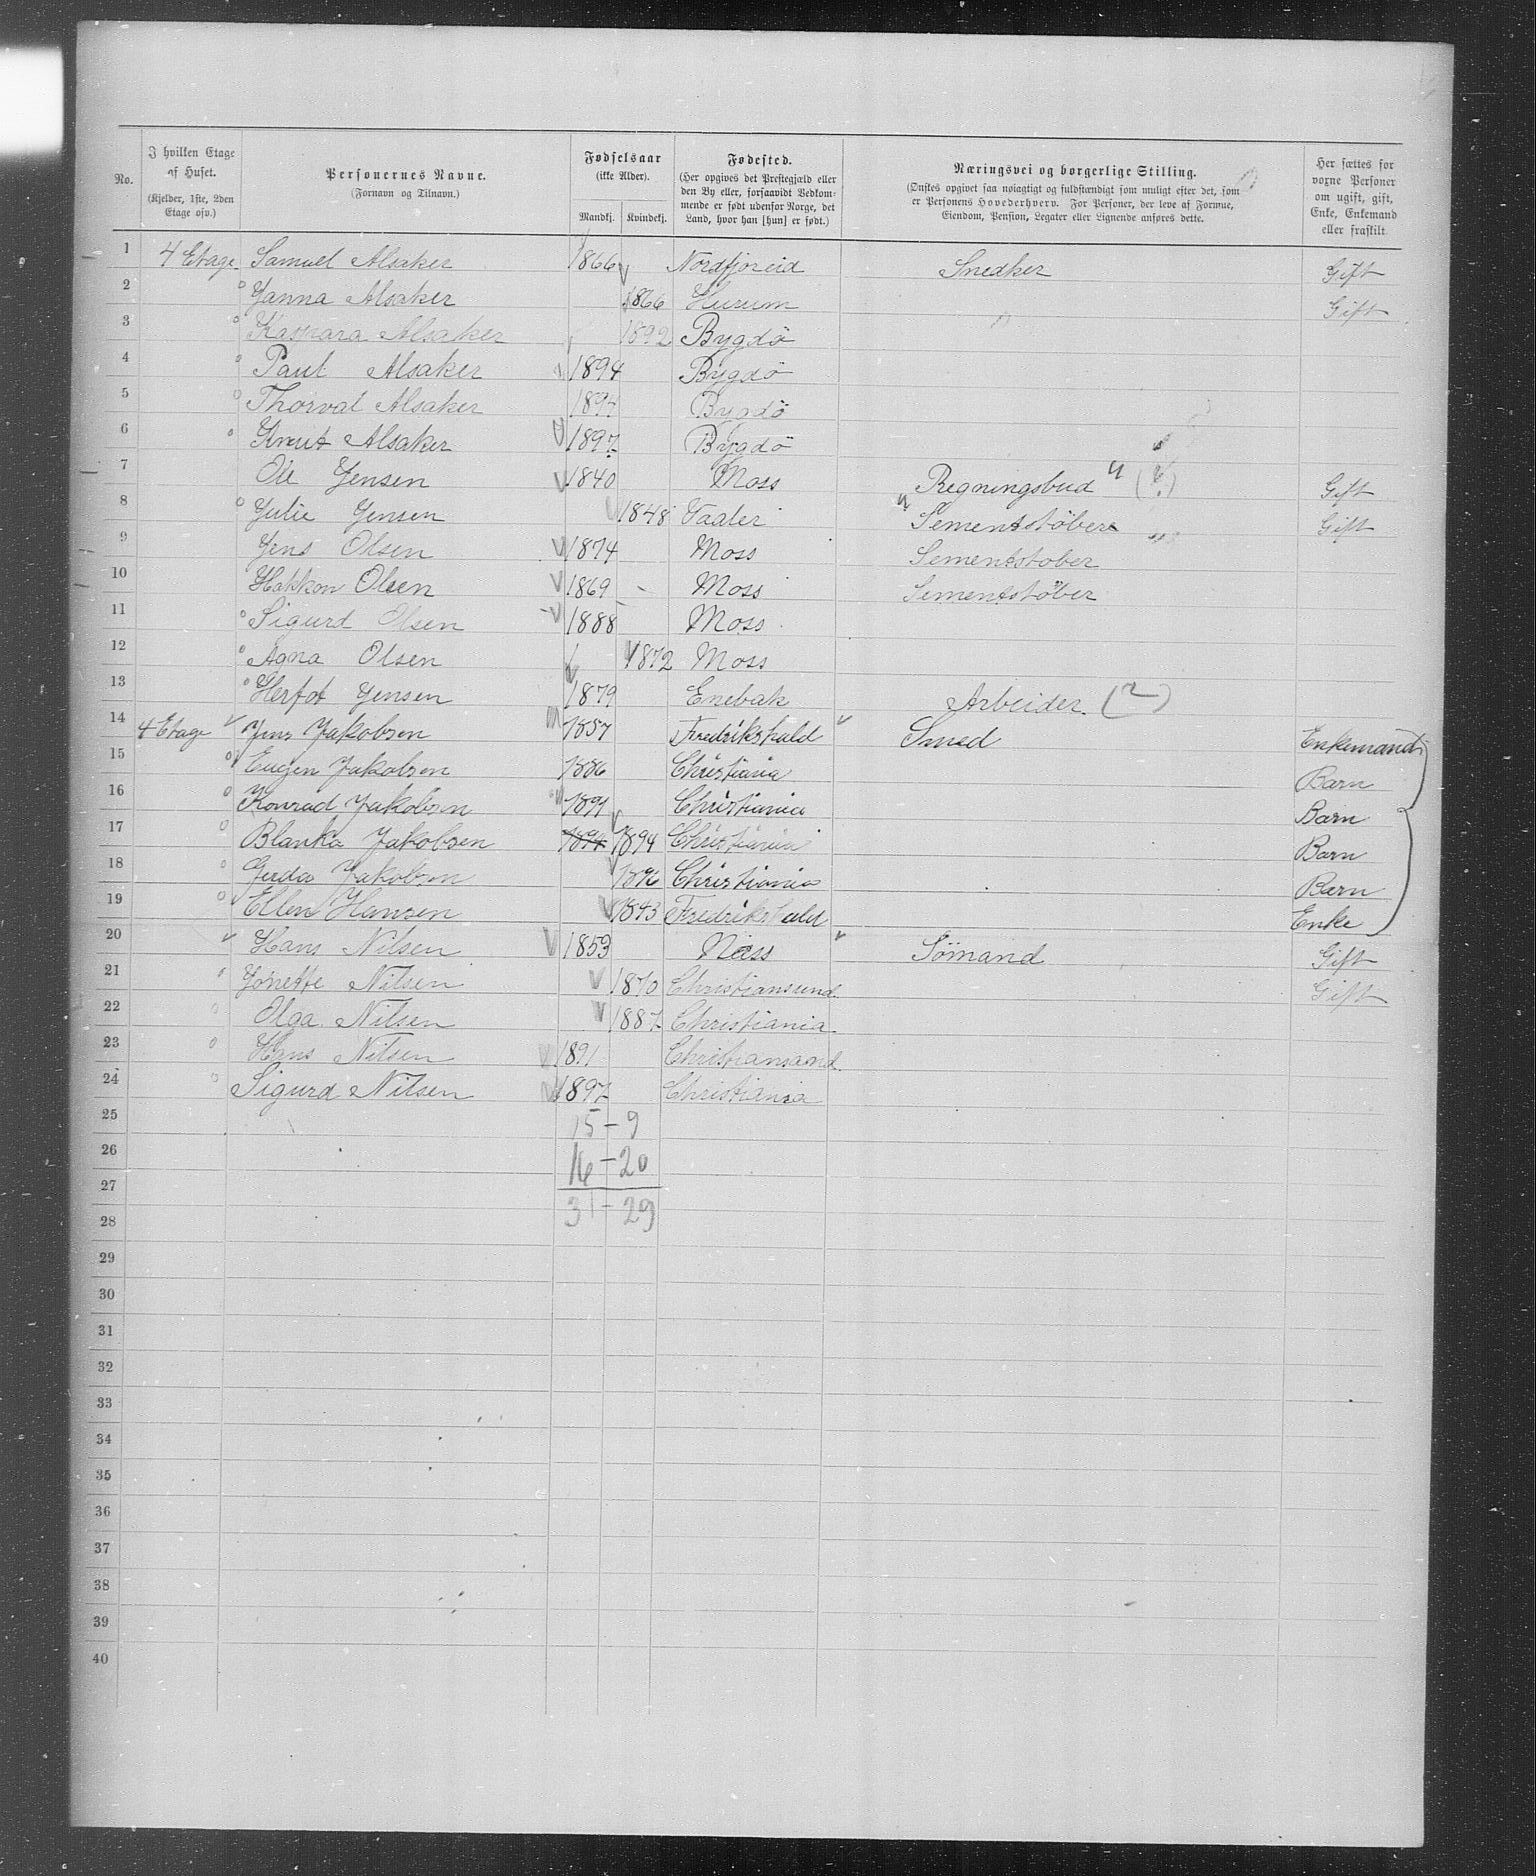 No.
I hvilken Etage af Huset. (Kjelder, 1ste, 2den Etage osv.)
Personernes Navne. (Fornavn og Tilnavn.)
Fødselsaar (ikke Alder). Mandkj. Kvindekj.
Fødested. (Her opgives det Prestegjæld eller den By eller, forsaavidt Vedkommende er født udenfor Norge, det Land, hvor han [hun] er født.)
Næringsvei og borgerlige Stilling. (Ønskes opgivet saa nøiagtigt og fuldstændigt som muligt efter det, som er Personens Hovederhverv. For Personer, der leve af Formue, Eiendom, Pension, Legater eller Lignende anføres dette.
Her sættes for voxne Personer om ugift, gift, Enke, Enkemand eller fraskilt.
1 4 Etage Samuel Alsaker 1866 Nordfjoreid Snedker Gift
2 Janna Alsaker 1866 Hurum Gift
3 Kaspara Alsaker 1892 Bygdö
4 Paul Alsaker 1894 Bygdö
5 Thorval Alsaker 1894 Bygdö
6 Knut Alsaker 1897 Bygdö
7 Ole Jensen 1840 Moss Regningsbud Gift
8 Julie Jensen 1848 Vaaler Sementstöber Gift
9 Jens Olsen 1874 Moss Sementstober
10 Hakkon Olsen 1869 Moss Sementstöber
11 Sigurd Olsen 1888 Moss
12 Agna Olsen 1872 Moss
13 Jensen 1879 Enebak Arbeider (2)
14 4 Etage Jens Jakobsen 1857 Fredrikshald Smed Enkemand
15 Eugen Jakobsen 1886 Christiania Barn
16 Konrad Jakobsen 1891 Christiania Barn
17 Blanka Jakobsen 1894 1894 Christiania Barn
18 Gerda Jakobsen 1896 Christiania Barn
19 Ellen Hansen 1843 Fredrikshald Enke
20 Hans Nilsen 1853 Næss Sömand Gift
21 Jonette Nilsen 1870 Christiansund Gift
22 Olga Nilsen 1887 Christiania
23 Hans Nilsen 1891 Christiansand
24 Sigurd Nilsen 1897 Christiania
25 15 – 9
26 16 – 20
27
28 31 – 29
29
30
31
32
33
34
35
36
37
38
39
40